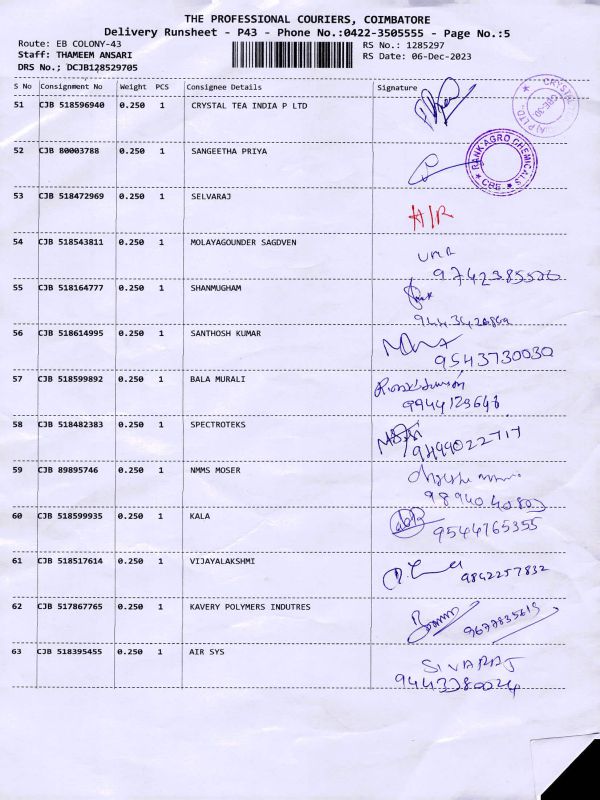 THE PROFESSIONAL COURIERS, COIMBATORE
Delivery Runsheet - P43 - Phone No.:0422-3505555 - Page No.:5
Route: EB COLONY-43 RS No.: 1285297
Staff: THAMEEM ANSARI RS Date: 06-Dec-2023
DRS No.; DCJB128529705
S No Consignment No Weight PCS Consignee Details Signature
51 CJB 518596940 0.250 1 CRYSTAL TEA INDIA P LTD
52 CJB 80003788 0.250 1 SANGEETHA PRIYA
RANK AGRO CHEMICALS
CBE
53 CJB 518472969 0.250 1 SELVARAJ
H/R
54 CJB 518543811 0.250 1 MOLAYAGOUNDER SAGDVEN
55 CJB 518164777 0.250 1 SHANMUGHAM
56 CJB 518614995 0.250 1 SANTHOSH KUMAR
9543730030
57 CJB 518599892 0.250 1 BALA MURALI
58 CJB 518482383 0.250 1 SPECTROTEKS
59 CJB 89895746 0.250 1 NMMS MOSER
60 CJB 518599935 0.250 1 KALA
9544765355
61 CJB 518517614 0.250 1 VIJAYALAKSHMI
9842257832
62 CJB 517867765 0.250 1 KAVERY POLYMERS INDUTRES
63 CJB 518395455 0.250 1 AIR SYS
SIVARAJ